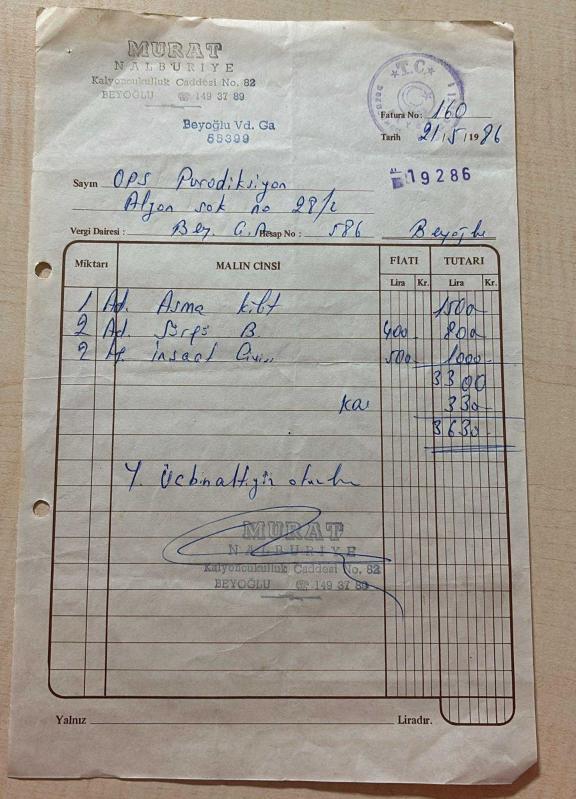 MURAT
NALBURİYE
Kalyoncukulluk Caddesi No. 82
BEYOĞLU ☎ 149 37 89
Beyoğlu Vd. Ga
55399
T.C.
Fatura No: 160
Tarih 21/5/1986
Sayın OPS Porodiksiyon
19286
sok no 28/2
Vergi Dairesi: Bey. Hesap No: 586 Beyoğlu
Miktarı MALIN CİNSİ FİATI TUTARI
Lira Kr. Lira Kr.
1 Ad. Asma kilt 1500-
2 Ad. B. 400- 800-
2 inşaat 500- 1000-
3300
330-
3630-
Y. Üçbinaltıyüz otuzlira
MURAT
NALBURİYE
Kalyoncukulluk Caddesi No. 82
BEYOĞLU ☎ 149 37 89
Yalnız Liradır.